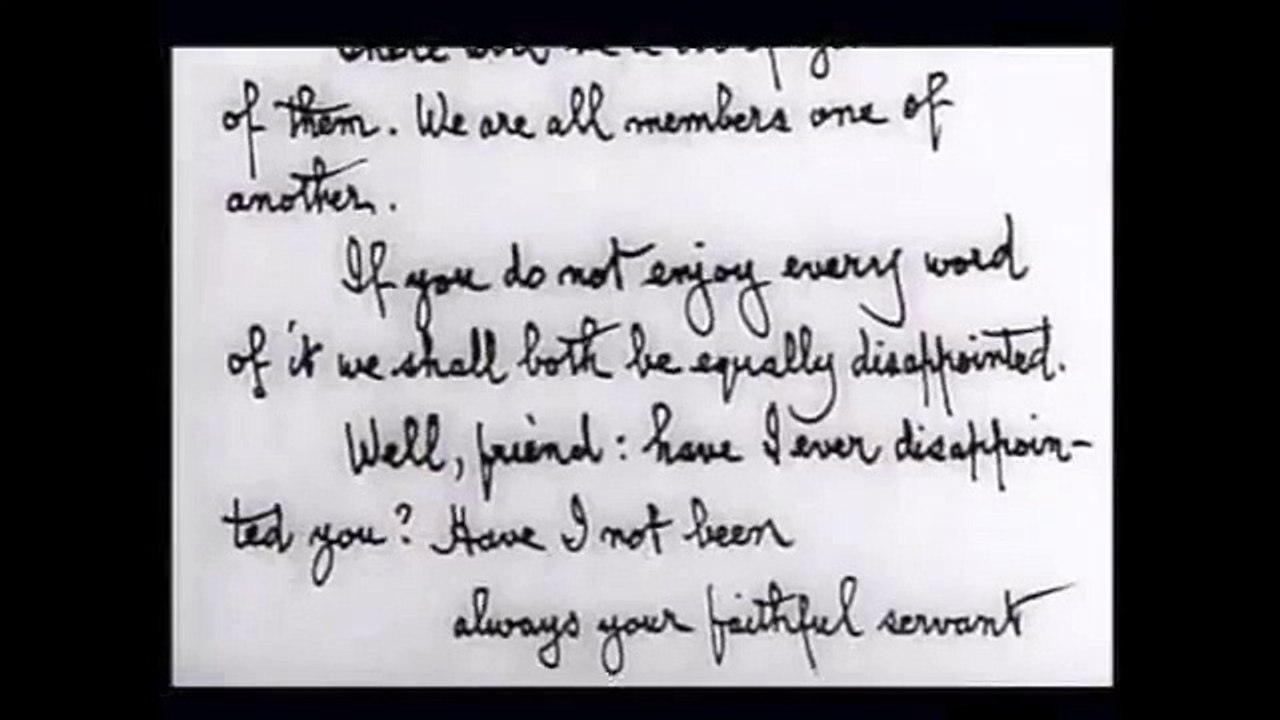 of them. We are all members one of
another.
If you do not enjoy every word
of it we shall both be equally disappointed.
Well, friend: have I ever disappoin-
ted you? Have I not been
always your faithful servant